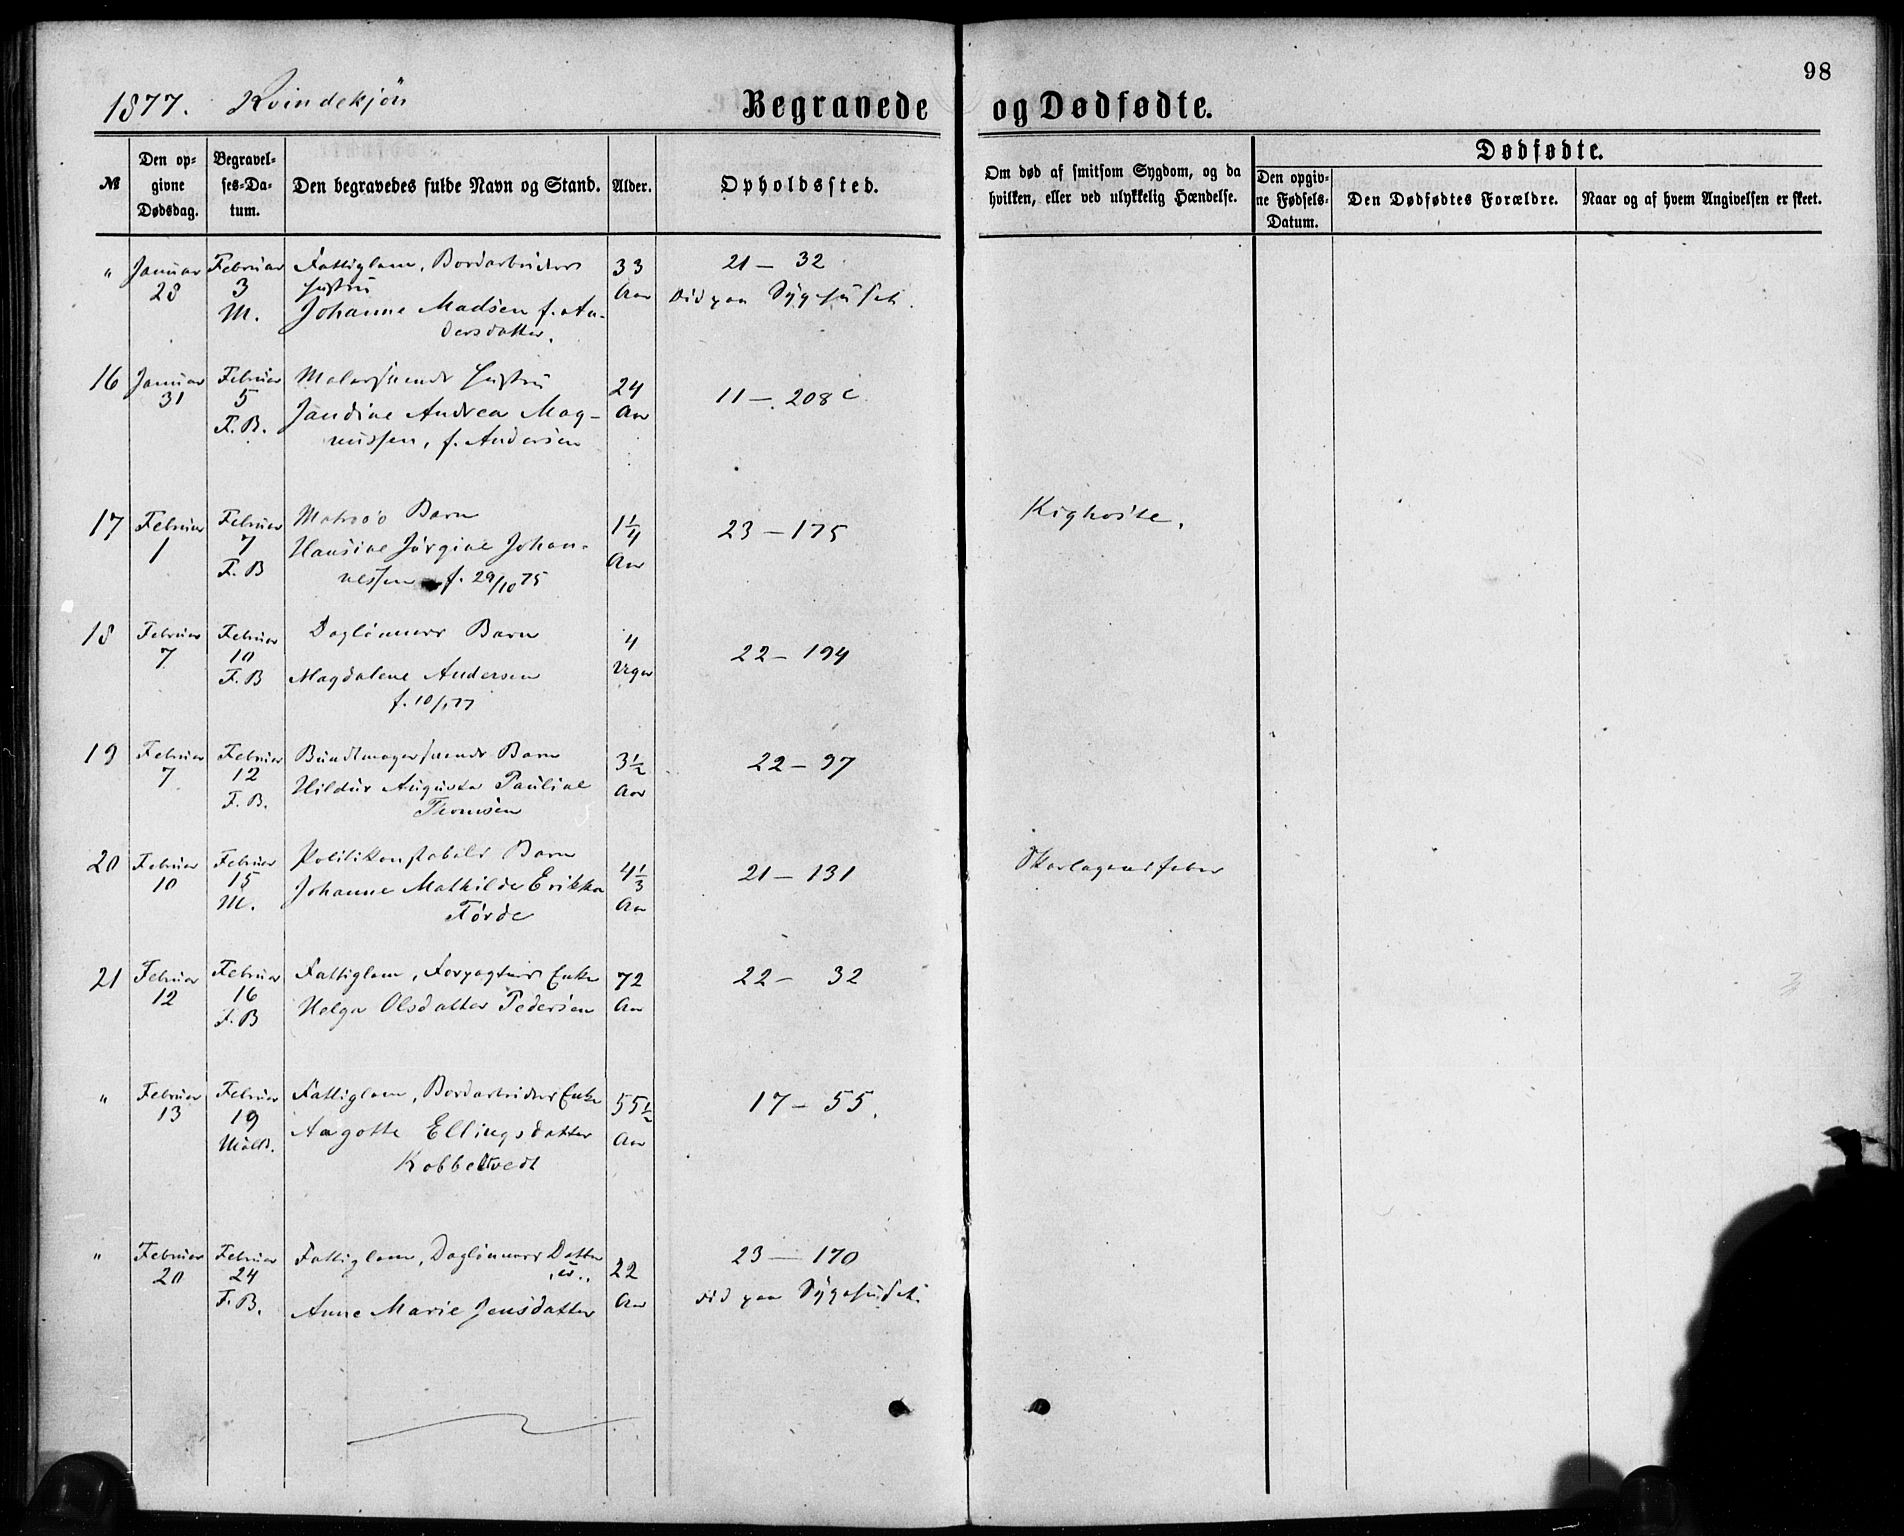 98
1877. Kvindekjøn Begravede og Dødfødte.
№ Den opgivne Dødsdag. Begravelses-Datum. Den begravedes fulde Navn og Stand. Alder. Opholdssted. Om død af smitsom Sygdom, og da hvilken, eller ved ulykkelig Hændelse. Dødfødte.
Den opgivne Fødsels-Datum. Den Dødfødtes Forældre. Naar og af hvem Angivelsen er skeet.
" Januar Februar Fattiglem, Bordarbeiders 33 21 – 32
28 3 Hustru Aar Død paa Sygehuset.
M. Johanne Madsen f. An-
dersdatter.
16 Januar Februar Malersvends Hustru 24 11 – 208 c
31 5 Jandine Andrea Mag- Aar
F. B. nussen, f. Andersen
17 Februar Februar Matros's Barn 1 1/4 23 – 175 Kighoste.
1 7 Hansine Jørgine Johan- Aar
F. B nessen f. 29/10 75
18 Februar Februar Daglønners Barn 4 22 – 194
7 10 Magdalene Andersen Uger
F. B f. 10/1 77
19 Februar Februar Bundtmagersvends Barn 3 1/2 22 – 97
7 12 Hildur Augusta Pauline Aar
F. B. Thomsen
20 Februar Februar Politikonstabels Barn 4 1/3 21 – 131 Skarlagensfeber
10 15 Johanne Mathilde Erikka Aar
M. Førde
21 Februar Februar Fattiglem, Forpagters Enke 72 22 – 32
12 16 Helga Olsdatter Pedersen Aar
F. B
" Februar Februar Fattiglem, Bordarbeiders Enke 55 1/2 17 – 55.
13 19 Aagotte Ellingsdatter Aar
Møllk. Kobbeltvedt
" Februar Februar Fattiglem, Daglønners Datter 22 23 – 170
20 24 Anne Marie Jensdatter Aar Død paa Sygehuset.
F. B.